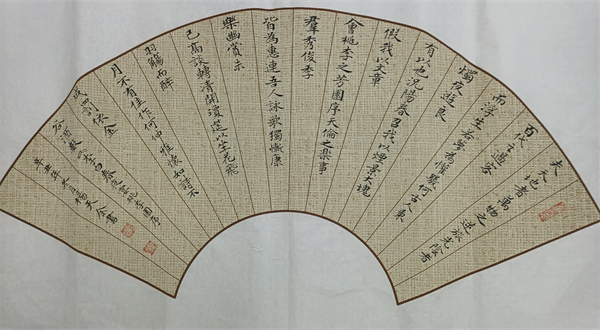 夫天地者萬物之逆旅光陰者
百代之過客
而浮生若夢為懽幾何古人秉
燭夜遊良
有以也況陽春召我以煙景大塊
假我以文章
會桃李之芳園序天倫之樂事
羣秀俊季
皆為惠連吾人詠歌獨慚康
樂幽賞未
已高談轉清開瓊筵以坐花飛
羽觴而醉
月不有佳作何伸雅懷如詩不
成罰依金
谷酒數李白春夜宴桃李園序
辛丑年冬